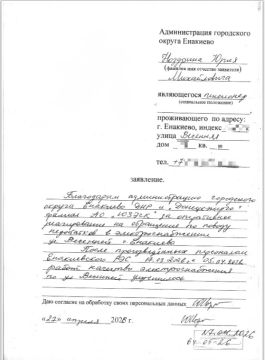 Администрация городского
округа Енакиево
Юрия
(фамилия имя отчество заявителя)
Михайловича
являющегося пенсионер
(социальное положение)
проживающего по адресу:
г. Енакиево, индекс
улица Весенняя
дом кв.
тел. +7
заявление.
Благодарим администрацию городского
округа Енакиево ДНР и "Донецкэнерго"
филиал АО "ЮЭСК" за оперативное
реагирование на обращение по поводу
перебоев в электроснабжении
ул Весенней г Енакиево
После произведенных персоналом
Енакиевского РЭС 05.04.2026
работ качество электроснабжения
по ул Весенней улучшилось
Даю согласие на обработку своих персональных данных
«22» апреля 2026г.